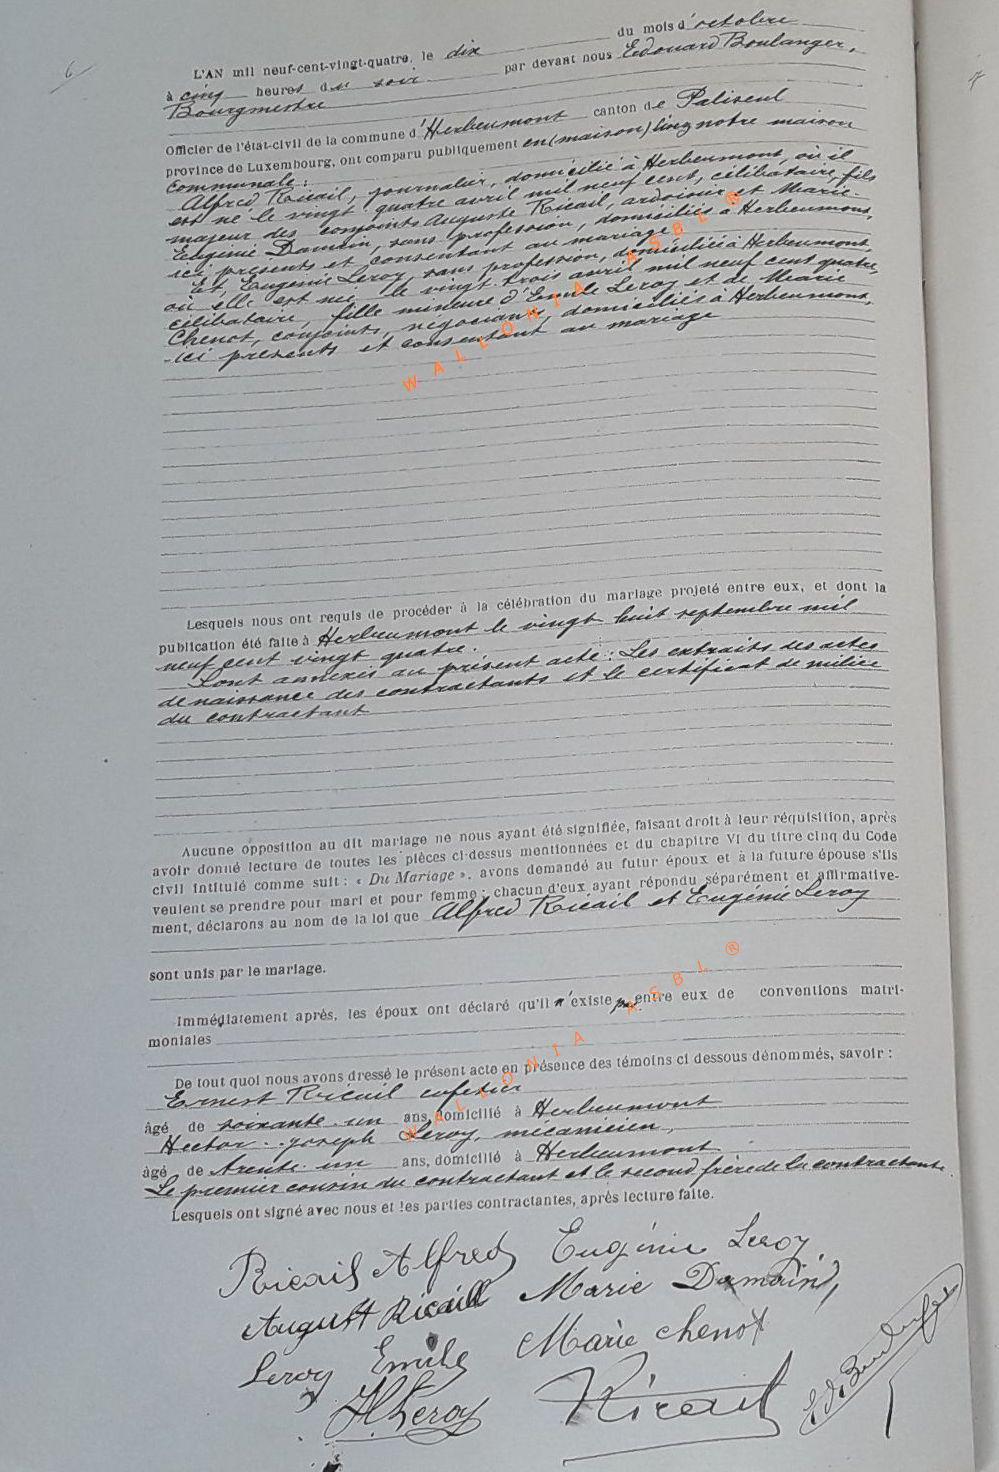 6
7
L'AN mil neuf-cent-vingt-quatre, le dix du mois d'octobre
à cinq heures du soir par devant nous Edouard Boulanger,
Bourgmestre
Officier de l'état-civil de la commune d'Herbeumont canton de Paliseul
province de Luxembourg, ont comparu publiquement en (maison) lisez notre maison
communale :
Alfred Ricail, journalier, domicilié à Herbeumont, où il
est né le vingt-quatre avril mil neuf cent, célibataire, fils
majeur des conjoints Auguste Ricail, ardoisier et Marie-
Eugénie Damain, sans profession, domiciliés à Herbeumont,
ici présents et consentant au mariage
Et Eugénie Leroy, sans profession, domiciliée à Herbeumont
où elle est née le vingt-trois avril mil neuf cent quatre,
célibataire, fille mineure d'Emile Leroy et de Marie
Chenot, conjoints, négociants, domiciliés à Herbeumont,
ici présents et consentant au mariage
WALLONIA ASBL ®
Lesquels nous ont requis de procéder à la célébration du mariage projeté entre eux, et dont la
publication été faite à Herbeumont le vingt huit septembre mil
neuf cent vingt quatre.
Sont annexés au présent acte : Les extraits des actes
de naissance des contractants et le certificat de milice
du contractant
Aucune opposition au dit mariage ne nous ayant été signifiée, faisant droit à leur réquisition, après
avoir donné lecture de toutes les pièces ci-dessus mentionnées et du chapitre VI du titre cinq du Code
civil intitulé comme suit : « Du Mariage », avons demandé au futur époux et à la future épouse s'ils
veulent se prendre pour mari et pour femme ; chacun d'eux ayant répondu séparément et affirmative-
ment, déclarons au nom de la loi que Alfred Ricail et Eugénie Leroy
sont unis par le mariage.
Immédiatement après, les époux ont déclaré qu'il n'existe pas entre eux de conventions matri-
moniales
WALLONIA ASBL ®
De tout quoi nous avons dressé le présent acte en présence des témoins ci dessous dénommés, savoir :
Ernest Ricail cafetier
âgé de soixante-un ans, domicilié à Herbeumont
Hector-Joseph Leroy, mécanicien,
âgé de trente-un ans, domicilié à Herbeumont
Le premier cousin du contractant et le second frère de la contractante.
Lesquels ont signé avec nous et les parties contractantes, après lecture faite.
Ricail Alfred Eugénie Leroy
August Ricaill Marie Damain,
Leroy Emile Marie Chenot
H. Leroy Ricail